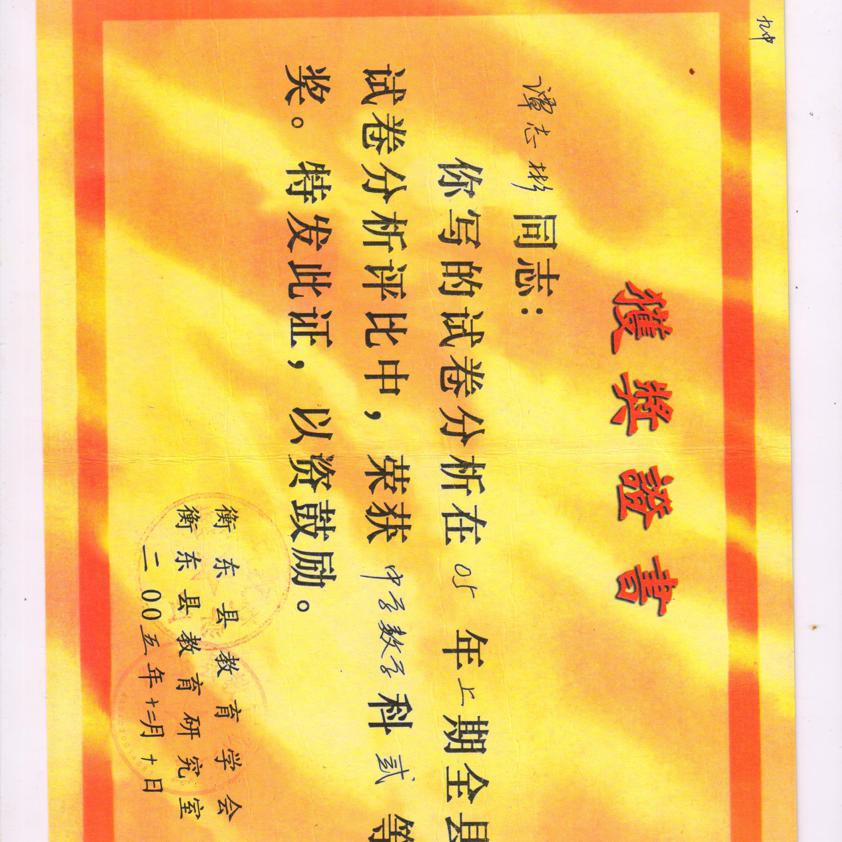 九中
獲獎證書
谭志彬同志：
你写的试卷分析在05年上期全县
试卷分析评比中，荣获中学数学科贰等
奖。特发此证，以资鼓励。
衡东县教育学会
衡东县教育研究室
二00五年十二月十日